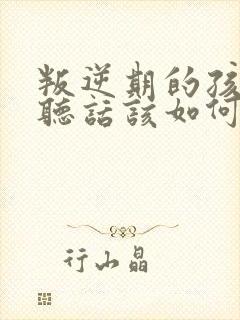 叛逆期的孩
聽話該如何
行山晶